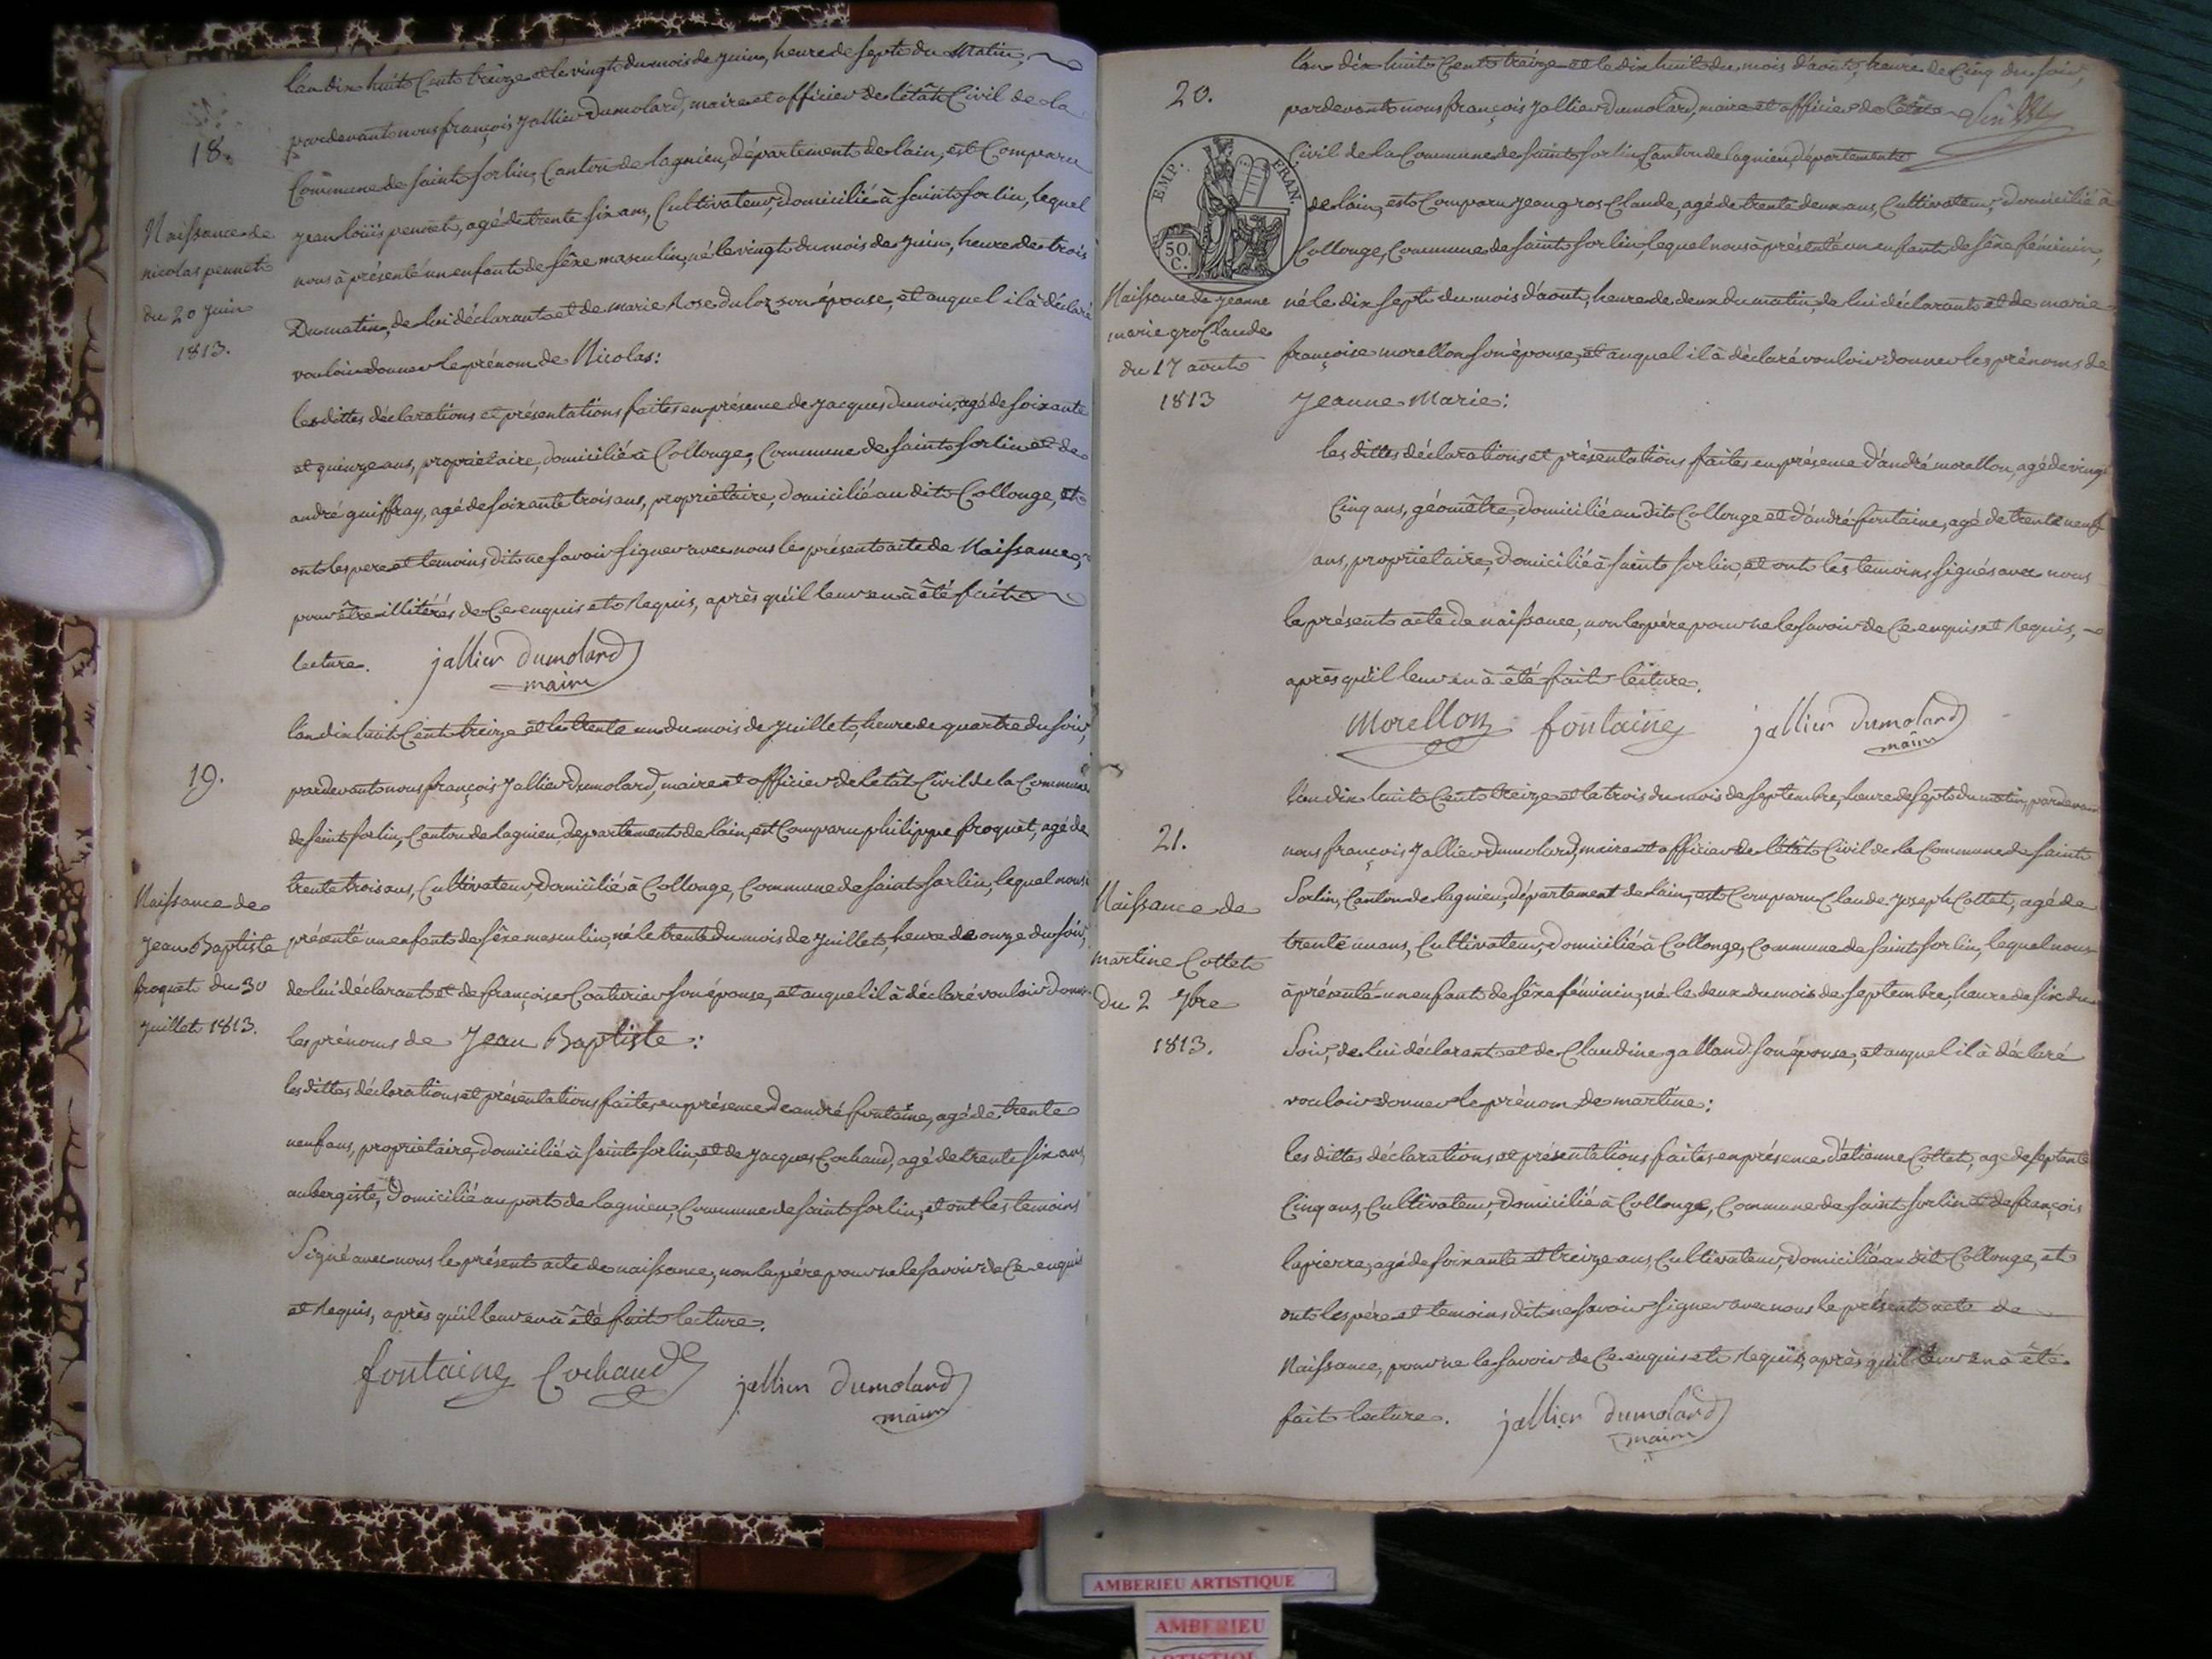 18.
Naissance de
nicolas pennet
du 20 juin
1813.
l'an dix huit Cent treize et le vingt du mois de juin, heure de sept du Matin,
pardevant nous françois Jallier Dumolard, maire et officier de l'êtât Civil de la
Commune de saint sorlin, Canton de lagnieu, département de lain, est Comparu
jean loüis pennet, agé de trente six ans, Cultivateur, domicilié à saint sorlin, lequel
nous à présenté un enfant de sêxe masculin, né le vingt du mois de juin, heure de trois
Du matin, de lui déclarant et de marie Rose duloz son épouse, et auquel il à déclaré
vouloir donner le prénom de Nicolas:
les dittes déclarations et présentations faites en présence de jacques dunoir, agé de soixante
et quinze ans, propriétaire, domicilié à Collonge, Commune de saint sorlin et de
andré guiffray, agé de soixante trois ans, propriétaire, domicilié au dit Collonge, et
ont les pere et temoins dit ne savoir signer avec nous le présent acte de Naissance,
pour être illitérés de Ce enquis et Requis, après qu'il leur en à êté fait
lecture. jallier dumolard
maire
19.
Naissance de
Jean Baptiste
froquet du 30
juillet 1813.
l'an dix huit Cent treize et le trente un du mois de juillet, heure de quatre du soir,
pardevant nous françois Jallier Dumolard, maire et officier de l'êtât Civil de la Commune
de saint sorlin, Canton de lagnieu, departement de lain, est Comparu philippe froquet, agé de
trente trois ans, Cultivateur, domicilié à Collonge, Commune de saint sorlin, lequel nous à
présenté un enfant de sêxe masculin, né le trente du mois de juillet, heure de onze du soir,
de lui déclarant et de françoise Couturier son épouse, et auquel il à déclaré vouloir donner
les prénoms de Jean Baptiste:
les dittes déclarations et présentations faites en présence de andré fontaine, agé de trente
neuf ans, propriétaire, domicilié à saint sorlin, et de jacques Cochaud, agé de trente six ans,
aubergiste, domicilié au port de lagnieu, Commune de saint sorlin, et ont les temoins
Signé avec nous le présent acte de naissance, non le pére pour ne le savoir de Ce enquis
et Requis, après qu'il leur en à êté fait lecture.
fontaine Cochaud jallier dumolard
maire
20.
EMP. FRAN.
50 C.
Naissance de jeanne
marie gros Claude
du 17 aout
1813
l'an dix huit Cent treize et le dix huit du mois d'aout, heure de Cinq du soir,
pardevant nous françois Jallier Dumolard, maire et officier de l'êtât
Civil de la Commune de saint sorlin, Canton de lagnieu, département
de lain, est Comparu jean gros Claude, agé de trente deux ans, Cultivateur, domicilié à
Collonge, Commune de saint sorlin, lequel nous à présenté un enfant de sêxe féminin,
né le dix sept du mois d'aout, heure de deux du matin, de lui déclarant et de marie
françoise morellon son épouse, et auquel il à déclaré vouloir donner les prénoms de
Jeanne Marie:
les dittes déclarations et présentations faites en présence d'andré morellon, agé de vingt
Cinq ans, géomêtre, domicilié au dit Collonge et d'andré fontaine, agé de trente neuf
ans, propriétaire, domicilié à saint sorlin, et ont les temoins signés avec nous
le présent acte de naissance, non le pére pour ne le savoir de Ce enquis et Requis,
après qu'il leur en à êté fait lecture.
Morellon fontaine jallier dumolard
maire
21.
Naissance de
martine Cottet
Du 2 7bre
1813.
l'an dix huit Cent treize et le trois du mois de septembre, heure de sept du matin, pardevant
nous françois Jallier Dumolard, maire et officier de l'êtât Civil de la Commune de saint
Sorlin, Canton de lagnieu, département de lain, est Comparu Claude joseph Cottet, agé de
trente un ans, Cultivateur, domicilié à Collonge, Commune de saint sorlin, lequel nous
à présenté un enfant de sêxe féminin, né le deux du mois de septembre, heure de six du
Soir, de lui déclarant et de Claudine galland son épouse, et auquel il à déclaré
vouloir donner le prénom de martine:
les dittes déclarations et présentations faites en présence d'étienne Cottet, agé de septante
Cinq ans, Cultivateur, domicilié à Collonge, Commune de saint sorlin et de françois
lapierre, agé de soixante et treize ans, Cultivateur, domicilié au dit Collonge, et
ont les pére et temoins dit ne savoir signer avec nous le présent acte de
Naissance, pour ne le savoir de Ce enquis et Requis, après qu'il leur en à êté
fait lecture. jallier dumolard
maire
AMBERIEU ARTISTIQUE
AMBERIEU
ARTISTIQUE